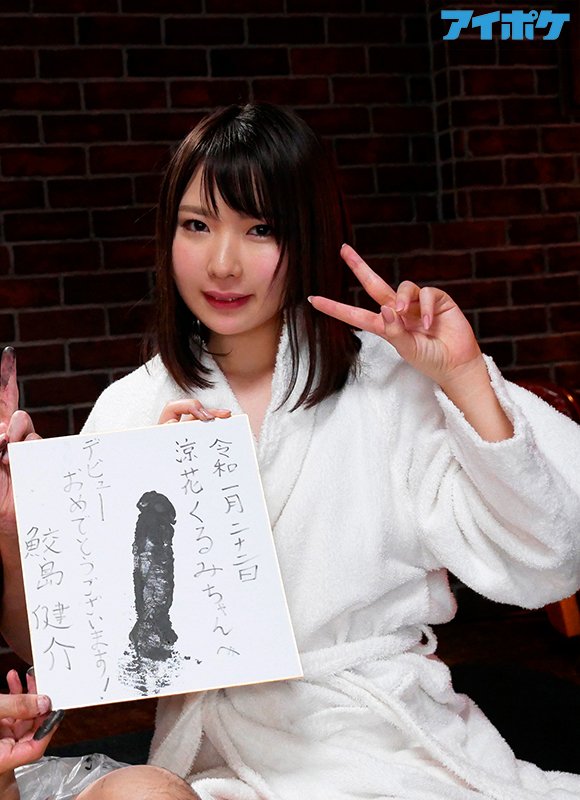 アイポケ
令和一月二十二日
涼花くるみちゃんへ
デビュー
おめでとうございます!
鮫島健介